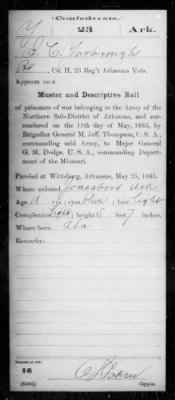 (Confederate.)
Y 23 Ark.
J. C. Yarbrough
Co. H, 23 Reg't Arkansas Vols.
Appears on a
Muster and Descriptive Roll
of prisoners of war belonging to the Army of the
Northern Sub-District of Arkansas, and sur-
rendered on the 11th day of May, 1865, by
Brigadier General M. Jeff. Thompson, C. S. A.,
commanding said Army, to Major General
G. M. Dodge, U. S. A., commanding Depart-
ment of the Missouri.
Paroled at Wittsburg, Arkansas, May 25, 1865.
Where enlisted Jonesboro Ark
Age 18 ; eyes Blue ; hair Light
Complexion Light ; height 5 feet 7 inches.
Where born Ala
Remarks:
Number of roll:
16
(636b) Copyist.